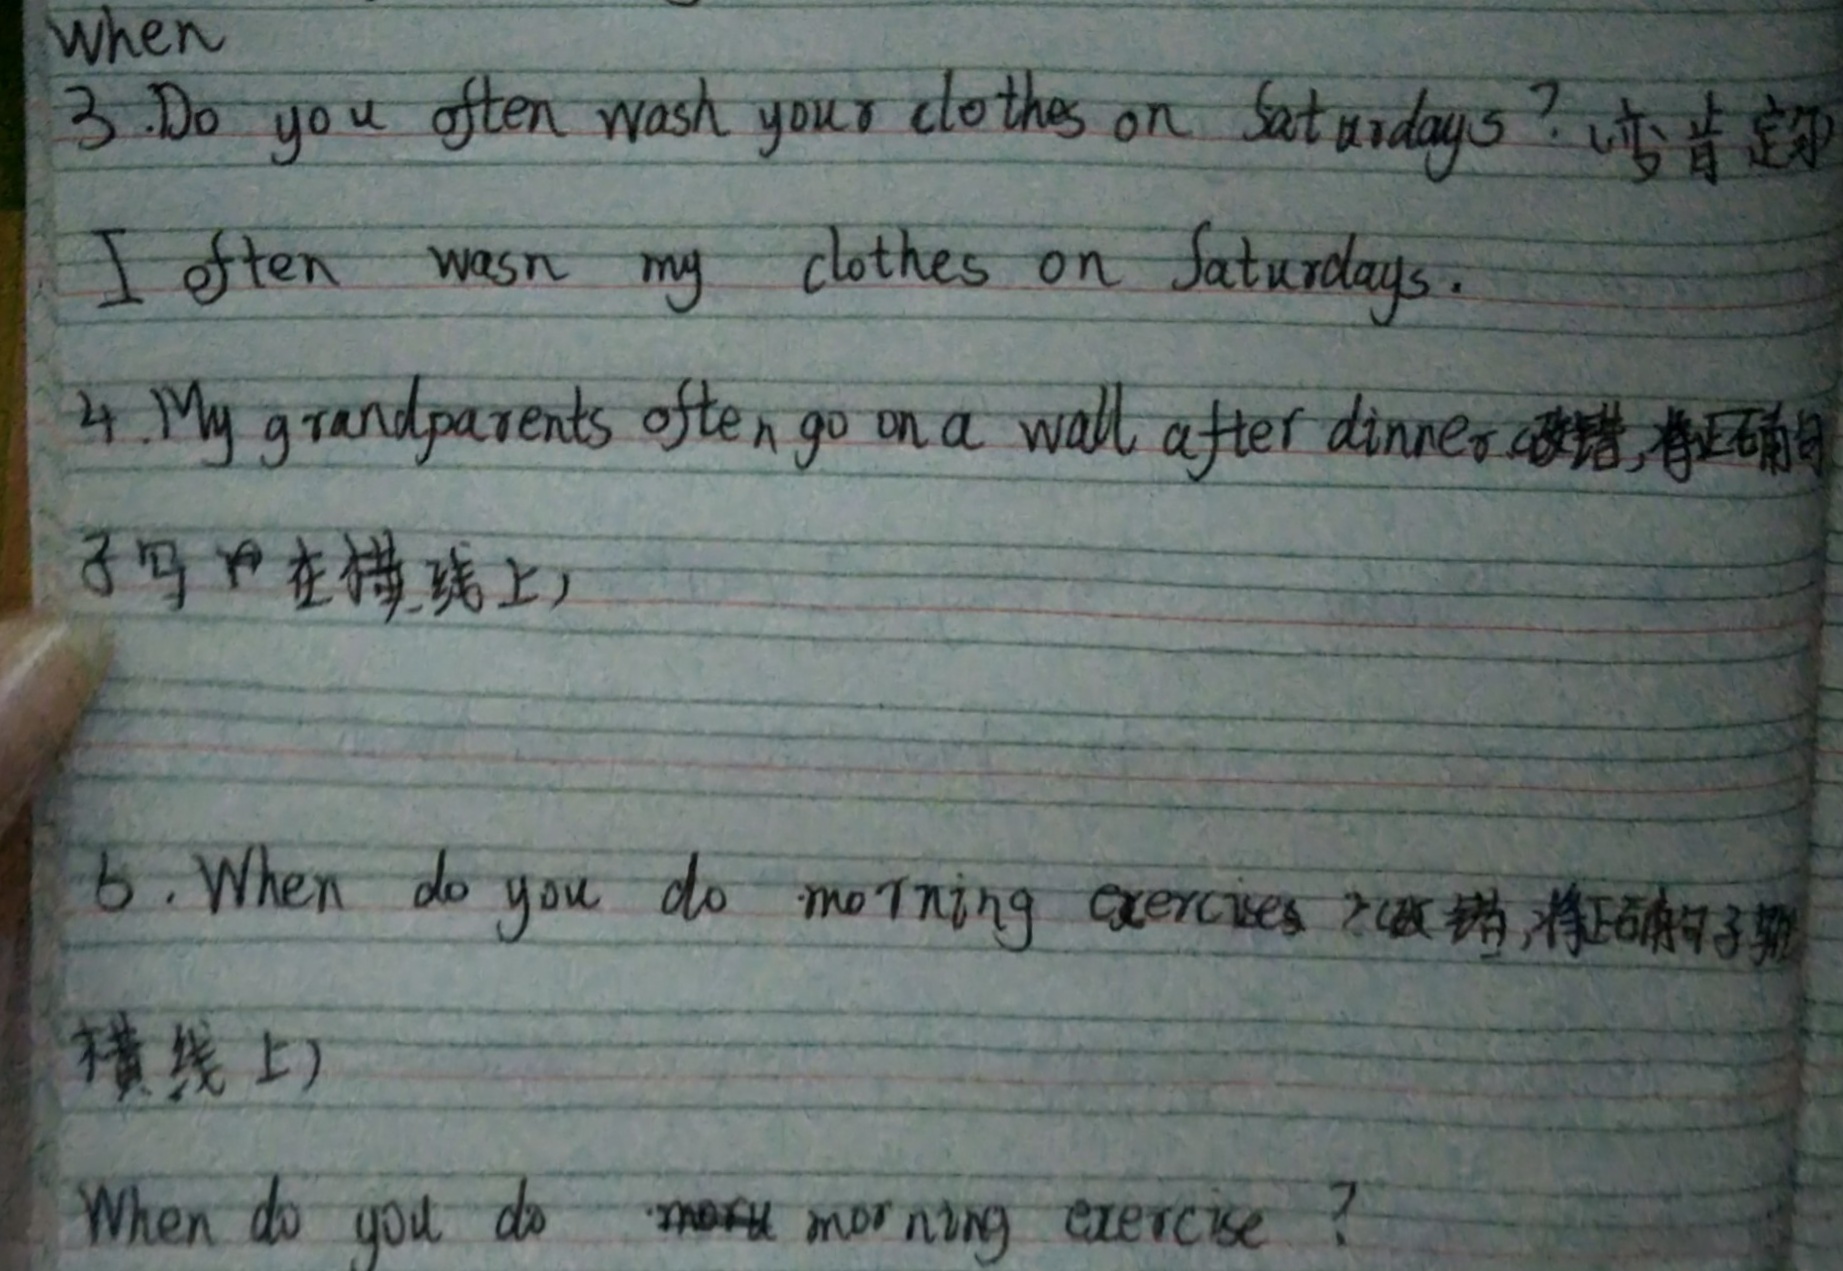 When
3. Do you often wash your clothes on Saturdays? (变肯定句
I often wasn my clothes on Saturdays.
4. My grandparents often go on a wall after dinner. (改错,将正确句
子写在横线上)
6. When do you do morning exercises? (改错,将正确句子写在
横线上)
When do you do morning exercise?